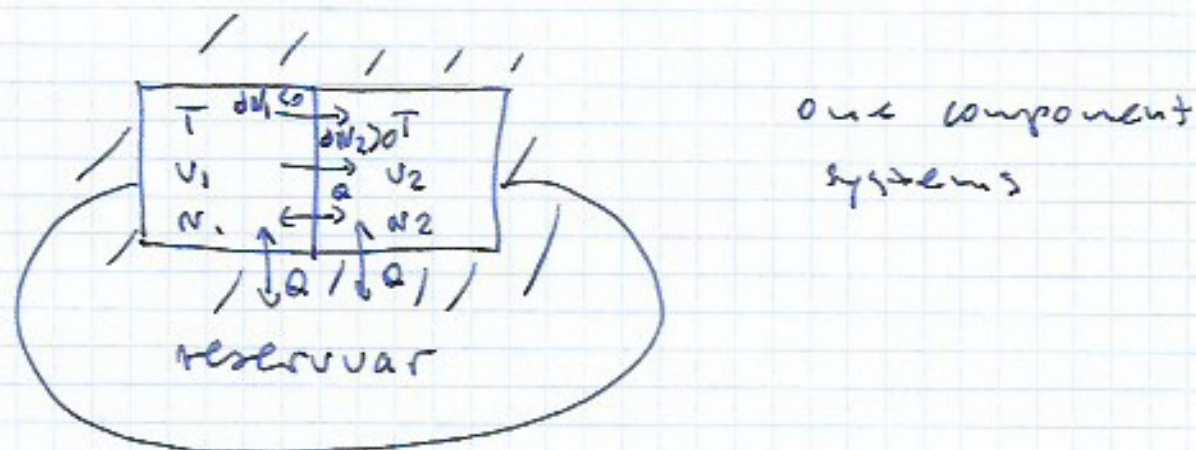 T dN₁<0 dN₂>0 T
V₁ V₂
Q
N₁ N₂
Q Q
reservuar
one component
systems